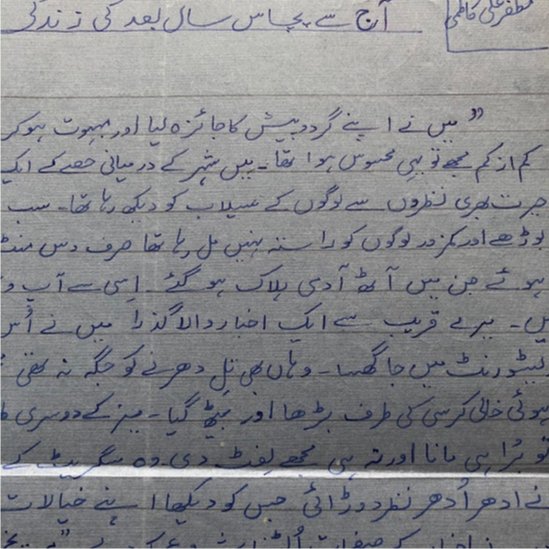 مظفر علی کاظمی
آج سے پچاس سال بعد کی زندگی
”میں نے اپنے گردوپیش کا جائزہ لیا اور مبہوت ہوکر
کم از کم مجھے تو یہی محسوس ہوا تھا۔ میں شہر کے درمیانی حصے کے ایک
حیرت بھری نظروں سے لوگوں کے سیلاب کو دیکھ رہا تھا۔ سب
بوڑھے اور کمزور لوگوں کو راستہ نہیں مل رہا تھا صرف دس منٹ
ہوئے جن میں آٹھ آدمی ہلاک ہو گئے۔ اِسی سے آپ
میرے قریب سے ایک اخبار والا گذرا میں نے اُس
میں جا گھسا۔ وہاں بھی تِل دھرنے کو جگہ نہ تھی
ہوئی خالی کرسی کی طرف بڑھا اور بیٹھ گیا۔ میز کے دوسری
تو بُرا ہی مانا اور نہ ہی مجھے لفٹ دی وہ سگریٹ کے
نے ادھر اُدھر نظر دوڑائی جس کو دیکھا اپنے خیالات